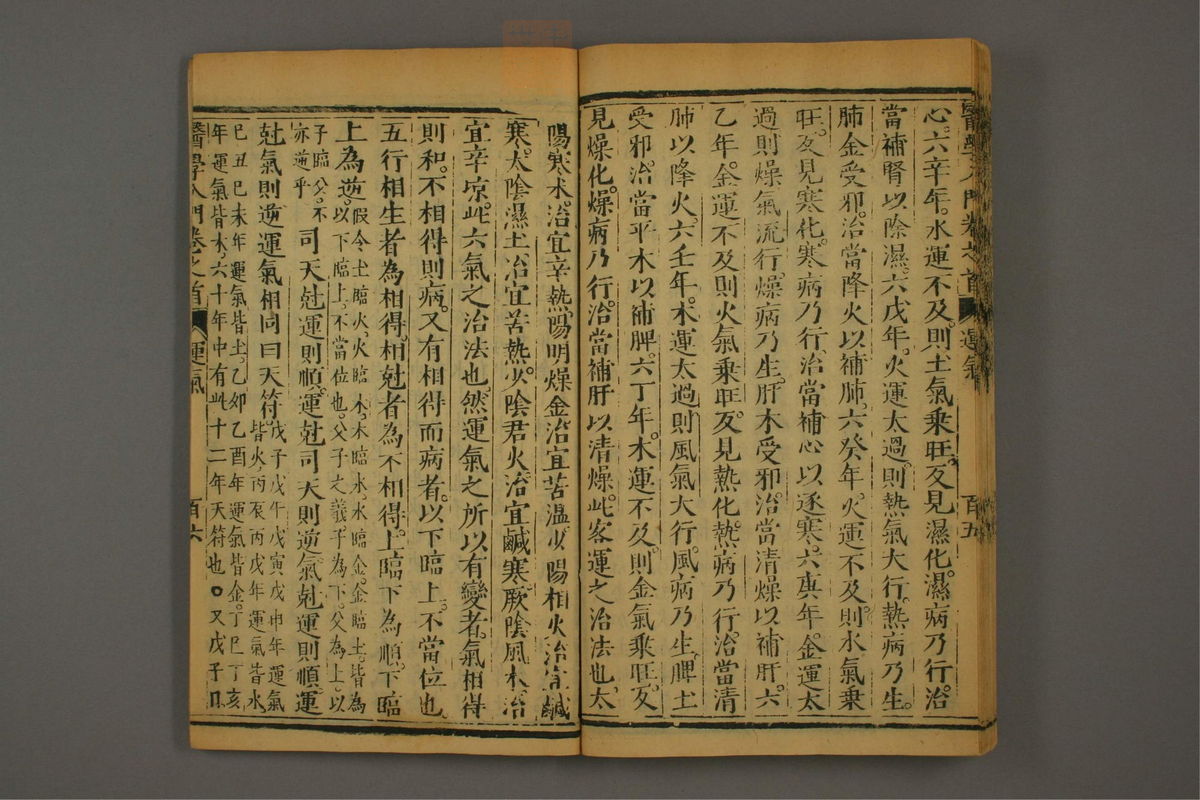 醫學入門卷之首 運氣 百五
心。六辛年。水運不及則土氣乘旺反見濕化濕病乃行治
當補腎以除濕。六戊年。火運太過則熱氣大行熱病乃生。
肺金受邪。治當降火以補肺。六癸年。火運不及則水氣乘
旺反見寒化。寒病乃行治當補心以逐寒。六庚年。金運太
過則燥氣流行燥病乃生。肝木受邪治當清燥以補肝。六
乙年。金運不及則火氣乘旺反見熱化。熱病乃行。治當清
肺以降火。六壬年。木運太過則風氣大行。風病乃生。脾土
受邪。治當平木以補脾。六丁年。木運不及則金氣乘旺反
見燥化。燥病乃行。治當補肝以清燥。此客運之治法也。太
陽寒水。治宜辛熱。陽明燥金治宜苦溫。少陽相火治宜鹹
寒。太陰濕土治宜苦熱。少陰君火治宜鹹寒。厥陰風木治
宜辛凉。此六氣之治法也。然運氣之所以有變者。氣相得
則和。不相得則病。又有相得而病者。以下臨上。不當位也。
五行相生者為相得。相尅者為不相得。上臨下為順。下臨
上為逆。
假令土臨火火臨木。木臨水。水臨金。金臨土。皆為
以下臨上。不當位也。父子之義子為下。父為上。以
子臨父。不
亦逆乎
司天尅運則順。運尅司天則逆氣尅運則順。運
尅氣則逆運氣相同曰天符
戊子戊午戊寅戊申年運氣
皆火。丙辰丙戌年運氣皆水
己丑己未年運氣皆土。乙卯乙酉年運氣皆金。丁巳丁亥
年運氣皆木。六十年中有此十二年天符也○又戊子日
醫學入門卷之首 運氣 百六